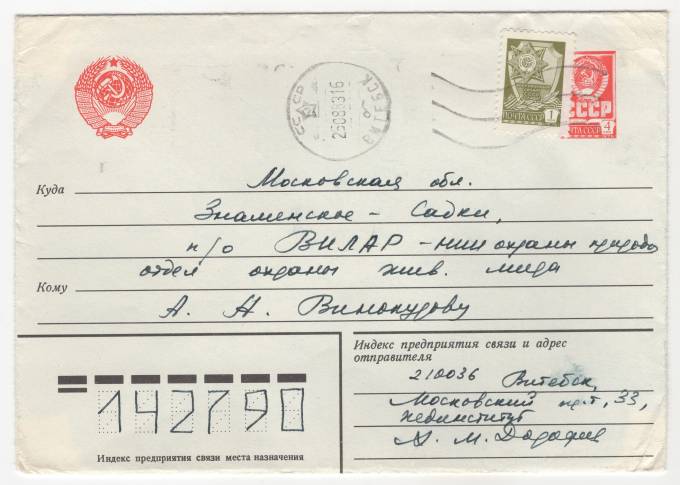 СССР
25088316
ВИТЕБСК
ПОЧТА СССР 1
СССР
ПОЧТА СССР 4
Куда
Московская обл.
Знаменское - Садки,
п/о ВИЛАР - НИИ охраны природы
отдел охраны жив. мира
Кому
А. Н. Винокурову
Индекс предприятия связи и адрес
отправителя
210036 Витебск,
Московский пр.т, 33,
Пединститут
А. М. Дорофеев
142790
Индекс предприятия связи места назначения